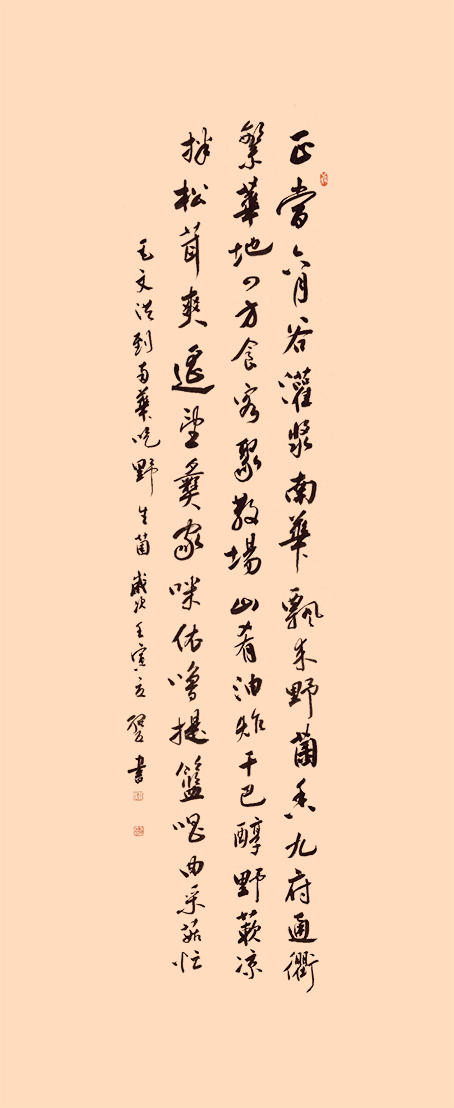 正當六月谷灌漿南華飄來野菌香九府通衢
繁華地四方食客聚教場山肴油炸干巴醇野蔌凉
拌松茸爽遙望彝家咪依嚕提籃唱曲采菇忙
毛文洪到南華吃野生菌歲次壬寅立書